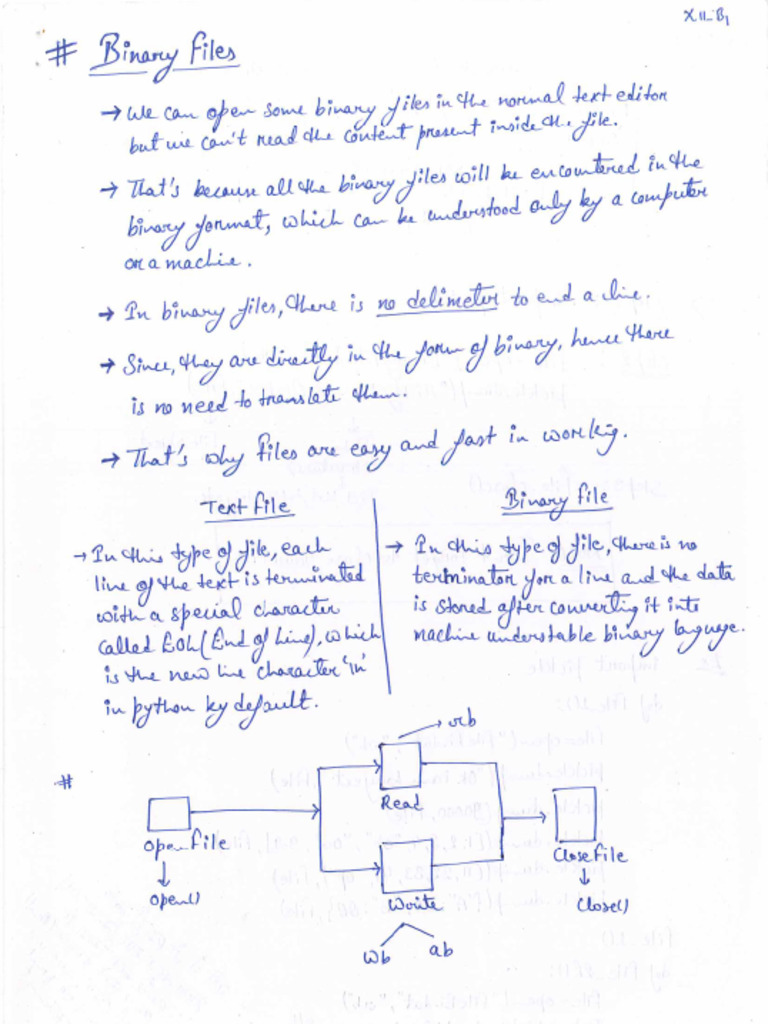 XII-B1
# Binary Files
→ We can open some binary files in the normal text editor
but we can't read the content present inside the file.
→ That's because all the binary files will be encountered in the
binary format, which can be understood only by a computer
or a machine.
→ In binary files, there is no delimeter to end a line.
→ Since, they are directly in the form of binary, hence there
is no need to translate them.
→ That's why files are easy and fast in working.
Text file
→ In this type of file, each
line of the text is terminated
with a special character
called EOL (End of Line), which
is the new line character '\n'
in python by default.
Binary file
→ In this type of file, there is no
terminator for a line and the data
is stored after converting it into
machine understable binary language.
#
Open File
↓
Open()
→ rb
Read
Write
Wb
ab
Close File
↓
Close()